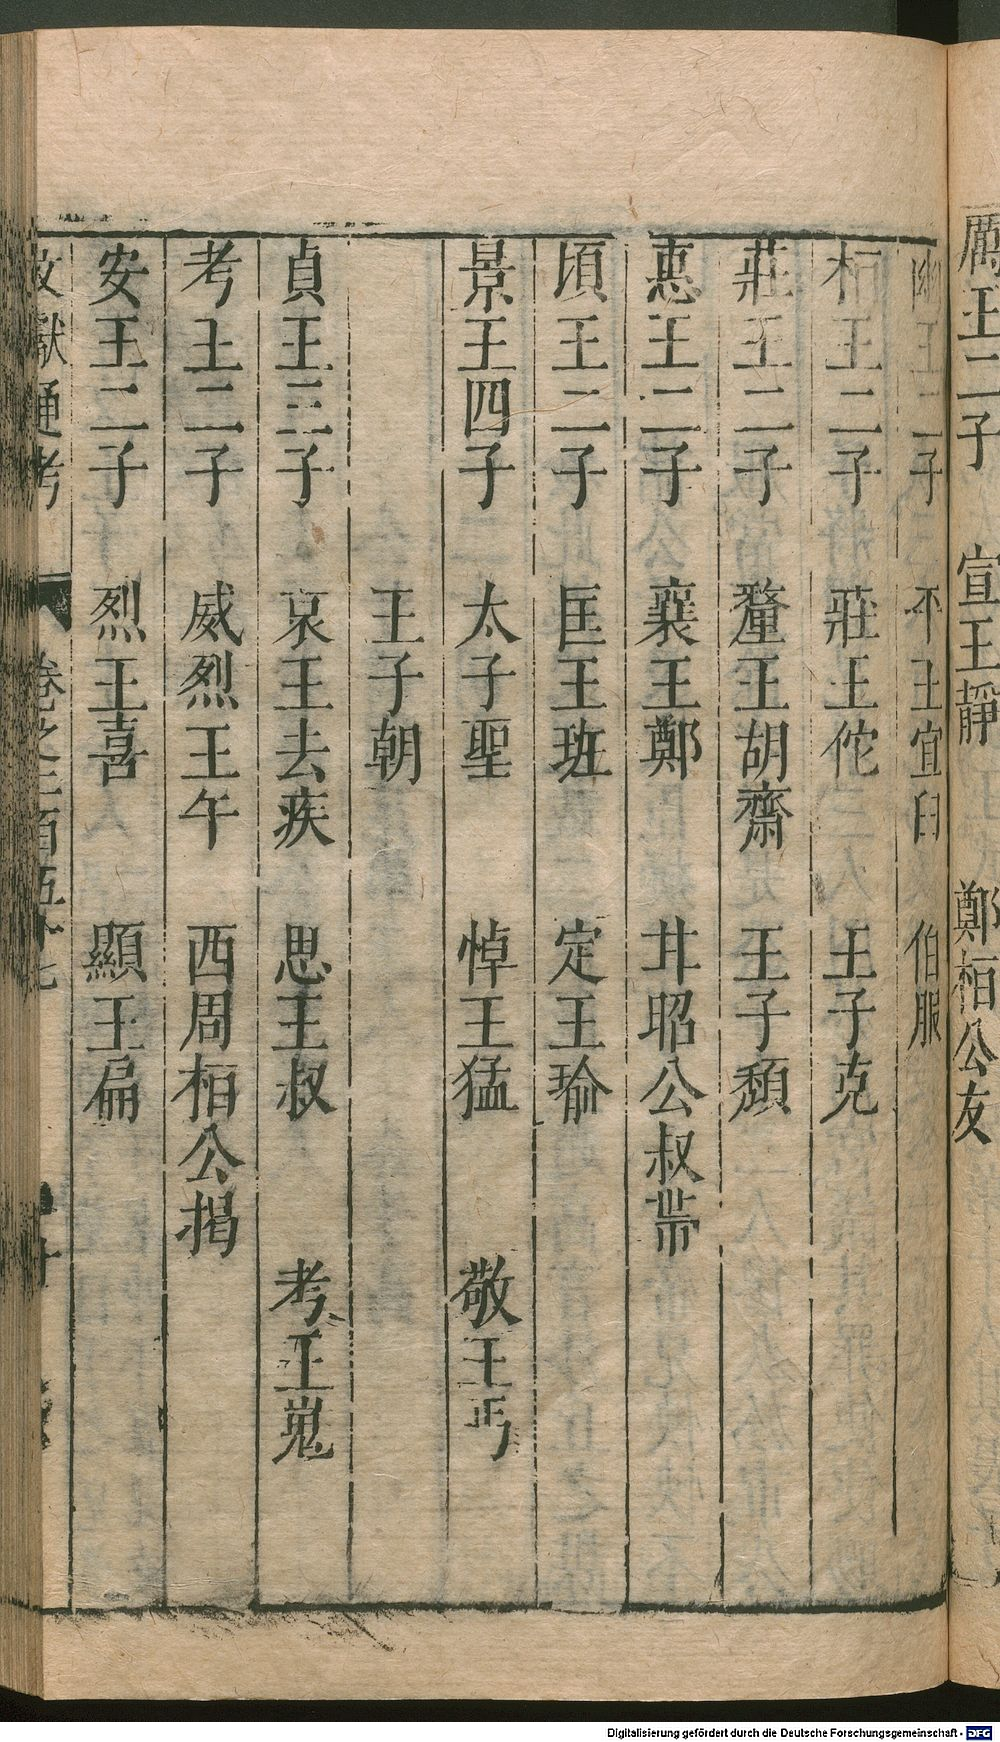 厲王二子　宣王靜　鄭桓公友
幽王二子　平王宜臼　伯服
桓王二子　莊王佗　王子克
莊王二子　釐王胡齋　王子頹
惠王二子　襄王鄭　甘昭公叔帶
頃王二子　匡王班　定王瑜
景王四子　太子聖　悼王猛　敬王丐
王子朝
貞王三子　哀王去疾　思王叔　考王嵬
考王二子　威烈王午　西周桓公揭
安王二子　烈王喜　顯王扁
文獻通考　卷之二百五十七
Digitalisierung gefördert durch die Deutsche Forschungsgemeinschaft - DFG